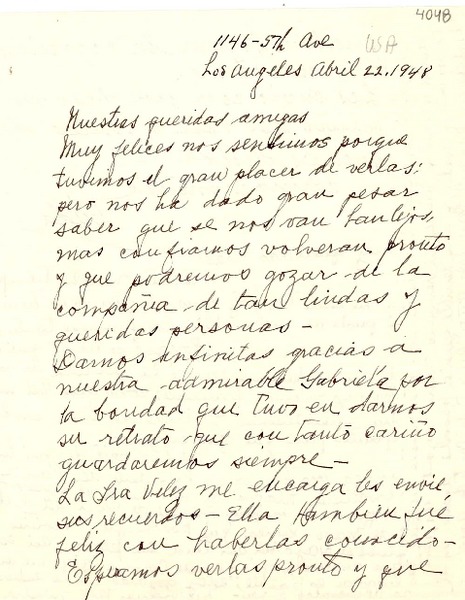 4048
1146-57th Ave USA
Los Angeles Abril 22.1948
Nuestras queridas amigas
Muy felices nos sentimos porque
tuvimos el gran placer de verlas:
pero nos ha dado gran pesar
saber que se nos van tan lejos,
mas confiamos volveran pronto
y que podremos gozar de la
compañia de tan lindas y
queridas personas-
Damos infinitas gracias a
nuestra admirable Gabriela por
la bondad que tuvo en darnos
su retrato que con tanto cariño
guardaremos siempre-
La Sra Velez me encarga les envie
sus recuerdos-Ella tambien fué
feliz con haberlas conocido-
Esperamos verlas pronto y que